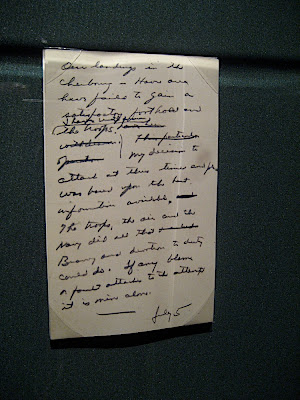 Our landings in the
Cherbourg - Havre area
have failed to gain a
satisfactory foothold and
I have withdrawn
the troops.
This particular
My decision to
attack at this time and place
was based upon the best
information available.
The troops, the air and the
Navy did all that
Bravery and devotion to duty
could do. If any blame
or fault attaches to the attempt
it is mine alone.
July 5